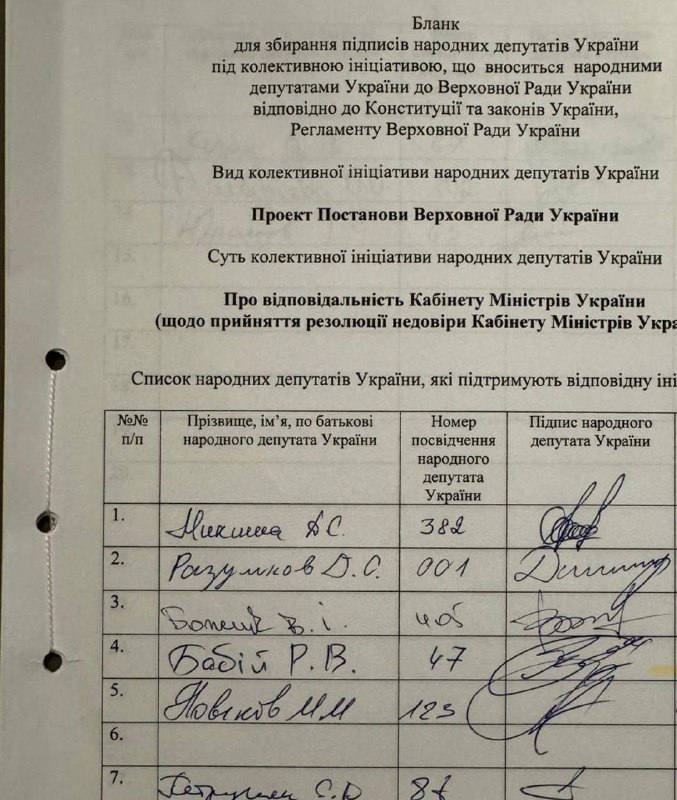 Бланк
для збирання підписів народних депутатів України
під колективною ініціативою, що вноситься народними
депутатами України до Верховної Ради України
відповідно до Конституції та законів України,
Регламенту Верховної Ради України
Вид колективної ініціативи народних депутатів України
Проект Постанови Верховної Ради України
Суть колективної ініціативи народних депутатів України
Про відповідальність Кабінету Міністрів України
(щодо прийняття резолюції недовіри Кабінету Міністрів Укра
Список народних депутатів України, які підтримують відповідну іні
№№ п/п
Прізвище, ім’я, по батькові народного депутата України
Номер посвідчення народного депутата України
Підпис народного депутата України
1. А.С. 382
2. Разумков Д.О. 001
3. В.І. 405
4. Бабій Р.В. 47
5. М М 123
6.
7.